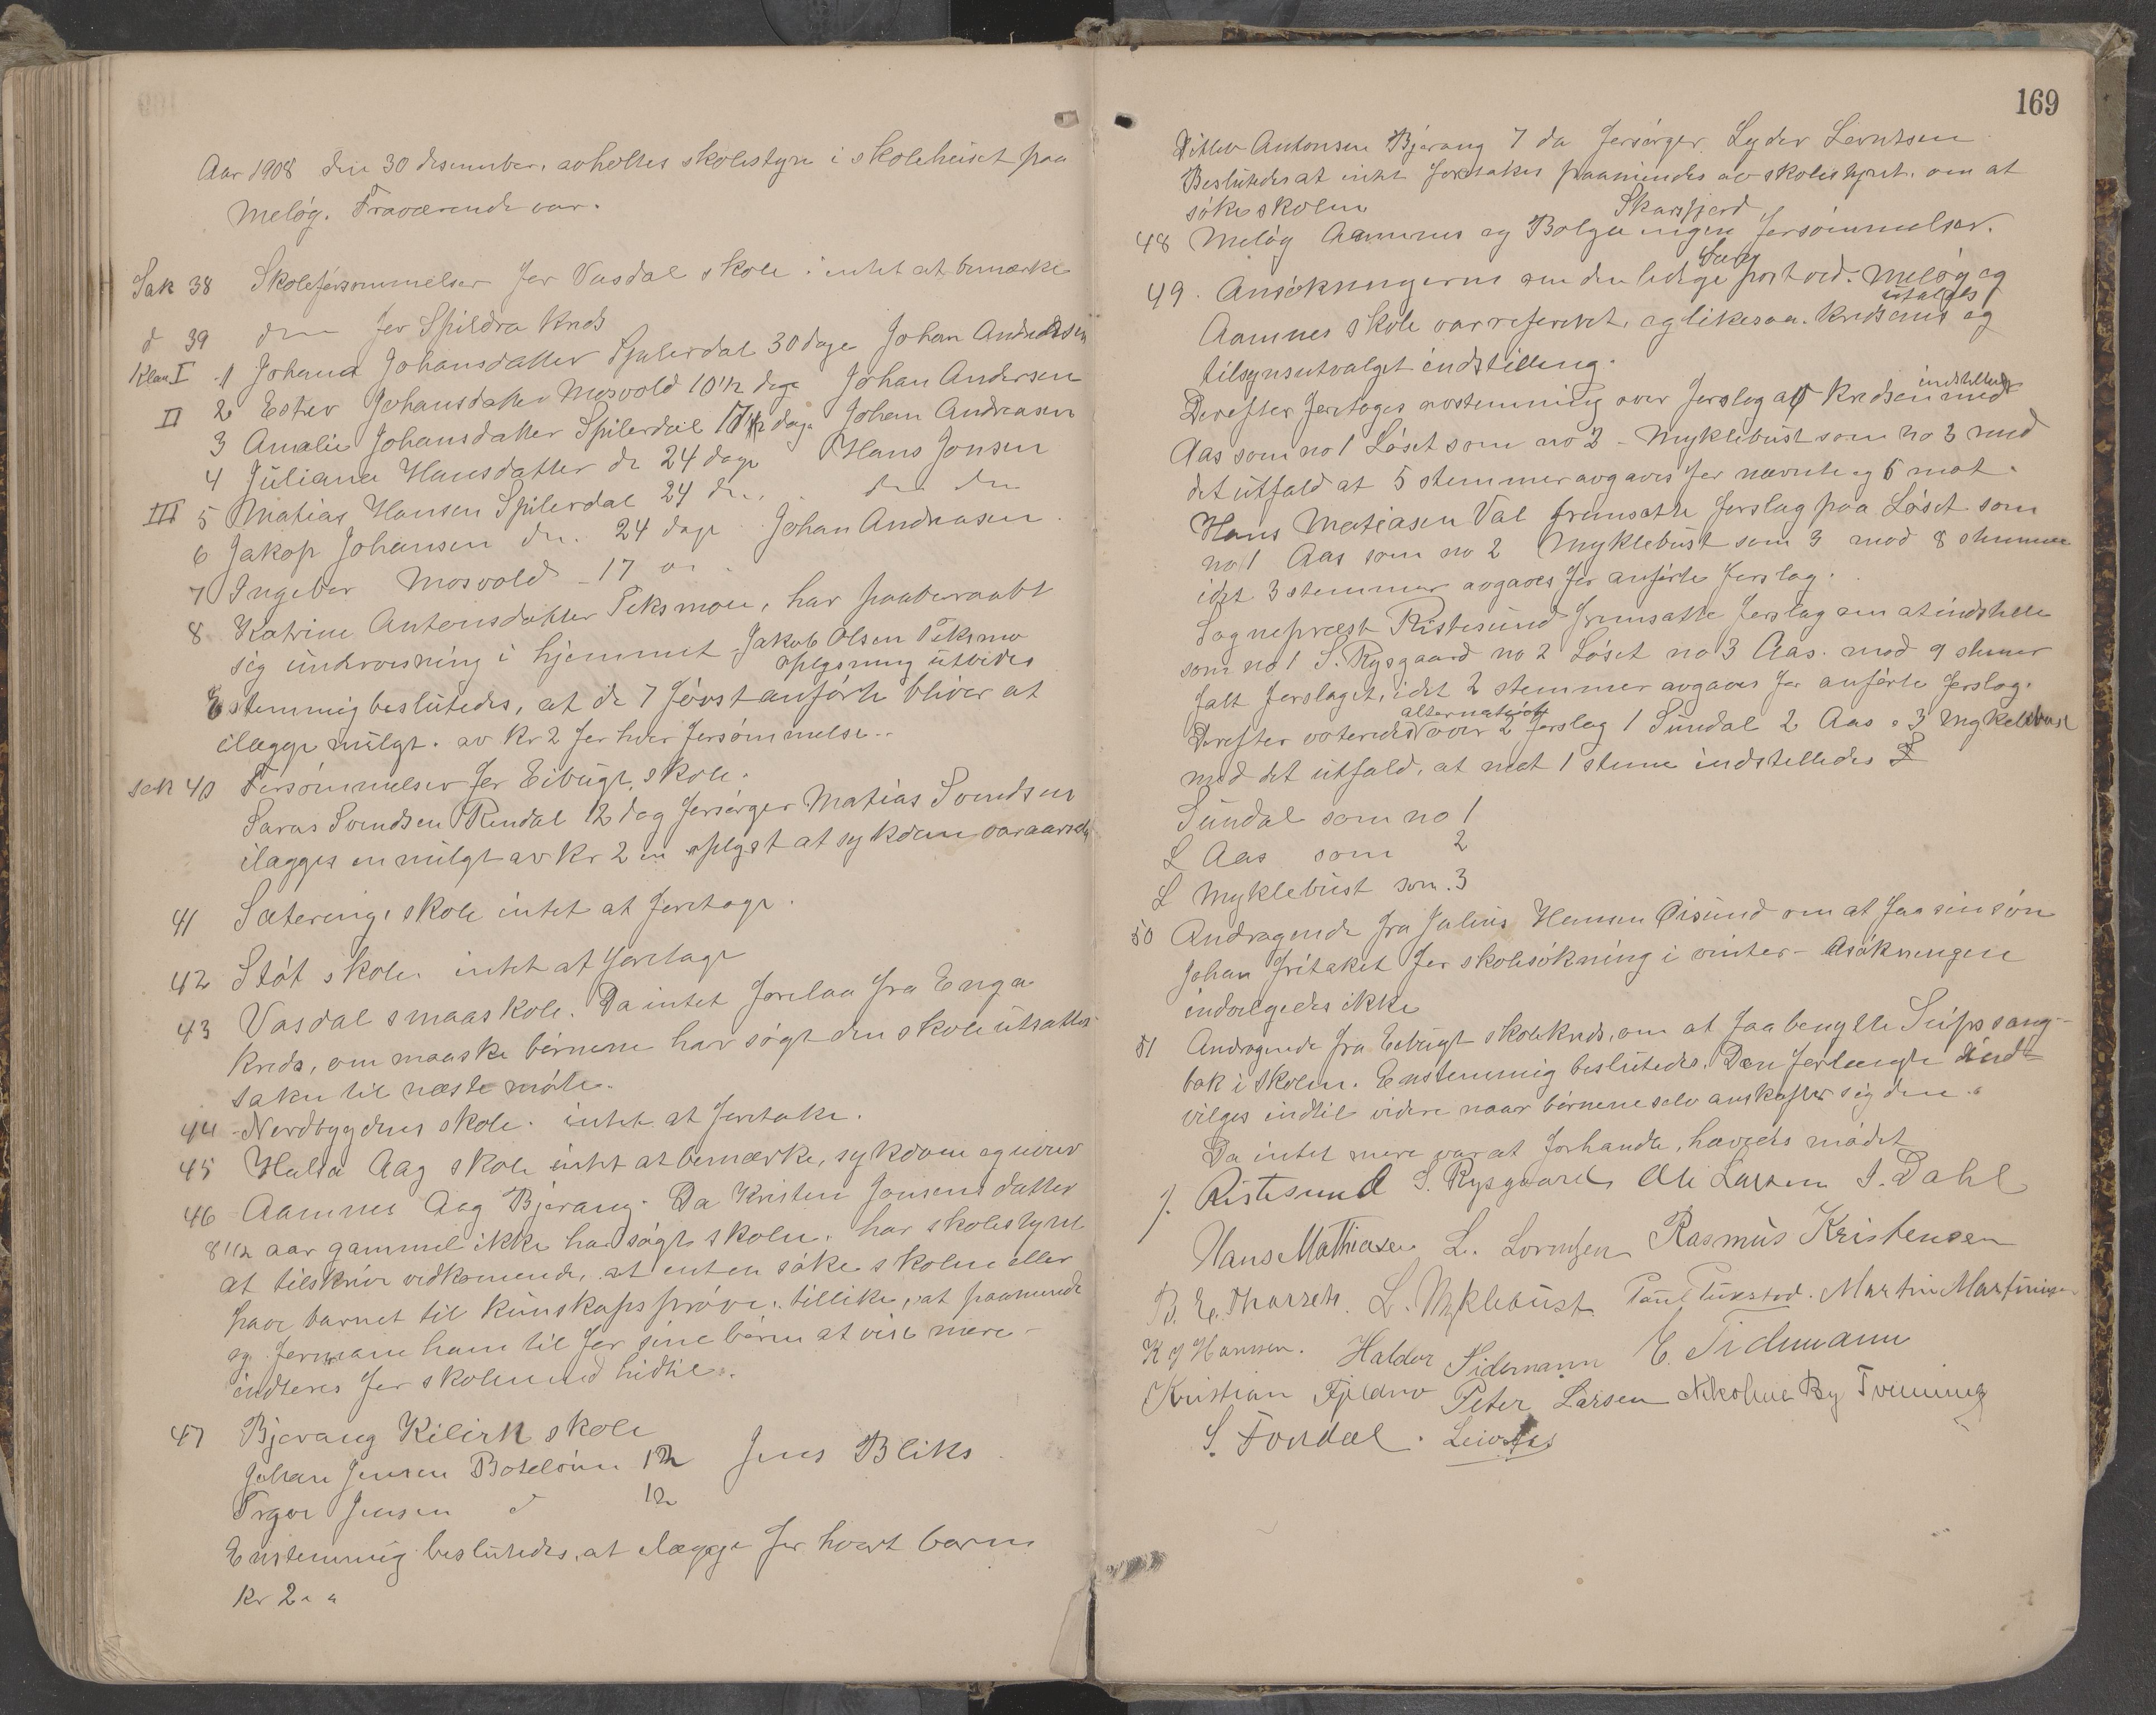 Aar 1908 den 30 desember avholtes skolestyre i skolehuset paa
Meløy. Fraværende var.
Sak 38 Skoleforsømmelser for Vasdal skole intet at bemærke
d 39 do for Spildra kreds
Klas I 1 Johana Johansdatter Spilderdal 30 dage Johan Andreasen
II 2 Ester Johansdatter Mosvold 10 1/2 dage Johan Andersen
3 Amalie Johansdatter Spilerdal 17 1/2 dage Johan Andreasen
4 Juliana Hansdatter do 24 dage Hans Jonsen
III 5 Matias Hansen Spilerdal 24 do do do
6 Jakop Johansen do. 24 dage Johan Andreasen
7 Ingebor Mosvold 17
8 Katrine Antonsdatter Teksmoen, har paaberaabt
sig undervisning i hjemmet. Jakob Olsen Teksmo
oplysning utbedes
Enstemmig beslutedes, at de 7 først anførte bliver at
ilægge mulgt. av kr 2 for hver forsømmelse.
Sak 40 Forsømmelser for Eibugt skole.
Saras Svendsen Rendal 12 dag forsørger Matias Svendsen
ilægges en mulgt av kr 2 oplyst at sykdom var aarsak
41 Sætering skole intet at foretage.
42 Støt skole intet at foretage
43 Vasdal smaaskole. Da intet forelaa fra Enga
kreds, om maaske børnene har søgt den skole utsattes
saken til næste møte.
44 Nordbygdens skole. intet at foretake.
45 Halsa Aag skole intet at bemærke, sykdom og uveir
46 Aamnes Aag Bjærang. Da Kristen Jonsens datter
8 1/2 aar gammel ikke har søgt skolen, har skolestyret
at tilskrive vedkomende, at enten søke skolen eller
have barnet til kunskapsprøve. tillike, at paaminde
og formane ham til for sine børn at vise mere
interes for skolen end hidtil.
47 Bjærang Kilirn skole
Johan Jensen Boteløun 12 Jens Bliks
Trgve Jensen d 12
Enstemmig beslutedes, at ilægge for hvert barn
Kr 2
169
Ditlev Antonsen Bjærang 7 da forsørger Lyder Lorntsen
Beslutedes at intet foretakes paamindes av skolestyret. om at
søke skolen
Skarsfjord
48 Meløy Aamnes og Bolga ingen forsømmelser.
49. Ansøkningerne om den ledige post ved Meløy og
Aamnes skole var referert, og likesaa. kredsens og
utalelse
tilsynsutvalget indstilling.
Derefter foretoges avstemning over forslag af kredsen med
indstilling
Aas som no 1 Løset som no 2 - Myklebust som no 3 med
det utfald at 5 stemmer avgaves for nævnte og 6 mot.
Hans Matiasen Val fremsatte forslag paa Løset som
no 1 Aas som no 2 Myklebust som 3 mod 8 stemmer
idet 3 stemmer avgaves for anførte forslag.
Sognepræst Ristesund fremsatte forslag om at indstille
som no 1 S. Rysgaard no 2 Løset no 3 Aas. mod 9 stemer
falt forslaget, idet 2 stemmer avgaves for anførte forslag.
alternativt
Derefter voteredes over 2 forslag 1 Sundal 2 Aas 3 Mykelbust
med det utfald, at mot 1 steme indstilledes
Sundal som no 1
L Aas som 2
L Myklebust som. 3
50 Andragende fra Julius Hansen Øisund om at faa sin søn
Johan fritaket for skolesøkning i vinter - Asøkningen
indvilgedes ikke
51 Andragende fra Eibugt skolekreds, om at faa benytte Seips sang-
bok i skolen. Enstemmig beslutedes. Den forlangte ind-
vilges indtil videre naar børnene selv anskaffer sig den.
Da intet mere var at forhandle, hævedes mødet
J. Ristesund S. Rysgaard Ole Larsen J. Dahl
Hans Mathiasen L. Lorntsen Rasmus Kristensen
B. E. Tharseth. L. Myklebust Martin Martinusen
K J Hansen. Haldor Tidemann E. Tidemann
Kristian Fjeldmo Peter Larsen Nikoline By Tvenning
S. Fondal.